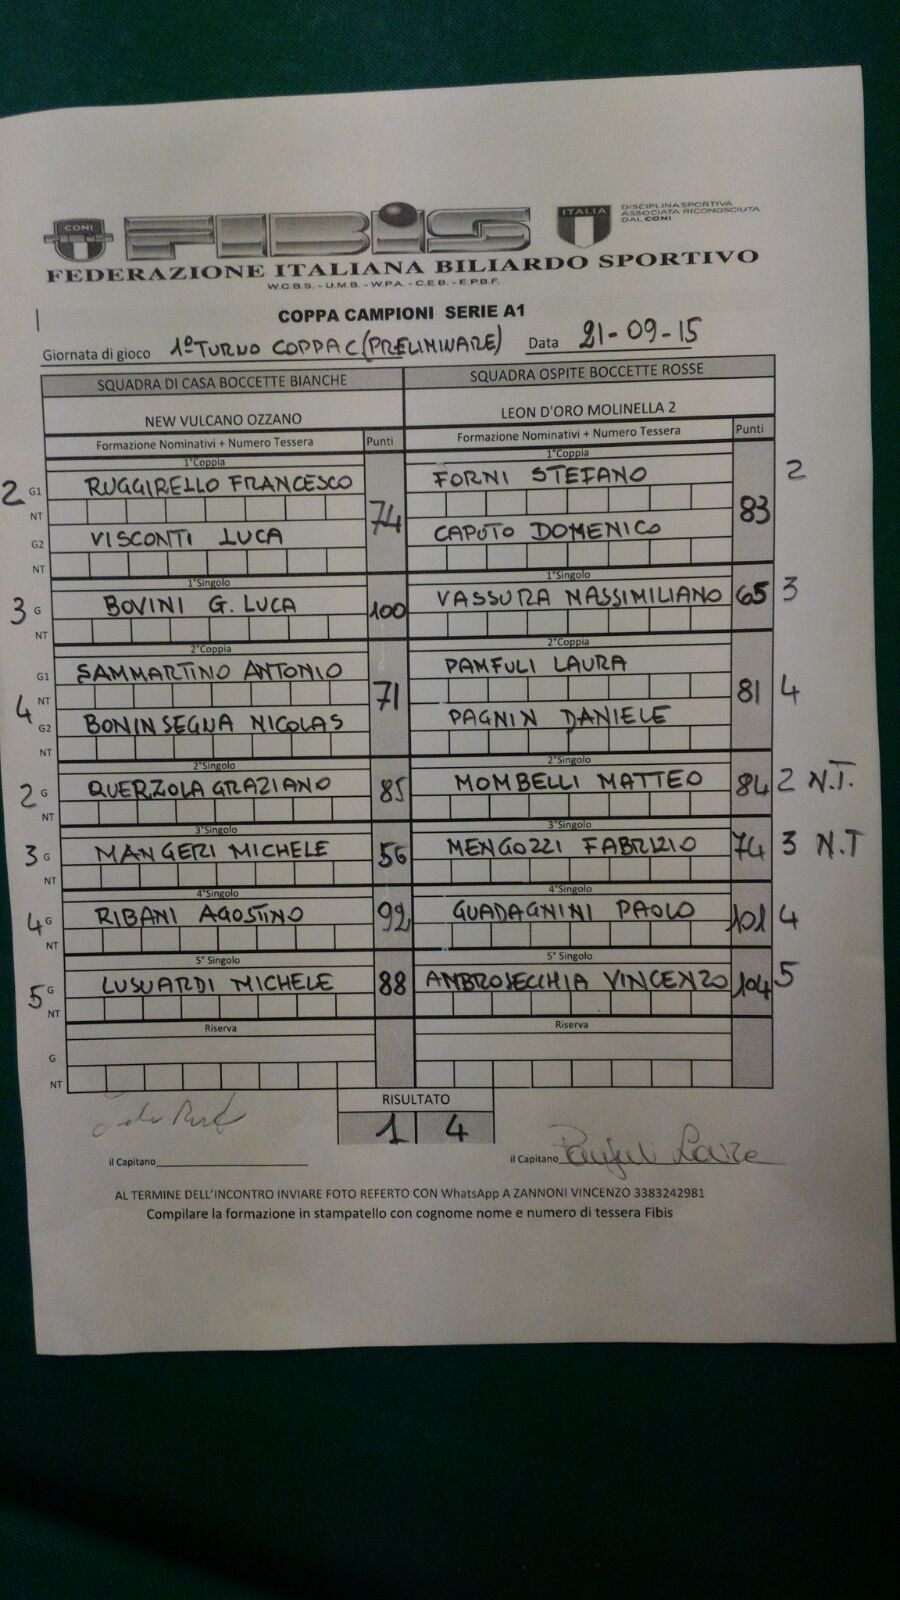 CONI
FIBiS
ITALIA
DISCIPLINA SPORTIVA
ASSOCIATA RICONOSCIUTA
DAL CONI
FEDERAZIONE ITALIANA BILIARDO SPORTIVO
W.C.B.S. - U.M.B. - W.P.A. - C.E.B. - E.P.B.F.
COPPA CAMPIONI SERIE A1
Giornata di gioco 1° TURNO COPPA C.(PRELIMINARE) Data 21-09-15
SQUADRA DI CASA BOCCETTE BIANCHE SQUADRA OSPITE BOCCETTE ROSSE
NEW VULCANO OZZANO LEON D'ORO MOLINELLA 2
Formazione Nominativi + Numero Tessera Punti Formazione Nominativi + Numero Tessera Punti
1°Coppia 1°Coppia
2 G1 RUGGIRELLO FRANCESCO 74 FORNI STEFANO 83 2
NT
G2 VISCONTI LUCA CAPUTO DOMENICO
NT
1°Singolo 1°Singolo
3 G BOVINI G. LUCA 100 VASSURA MASSIMILIANO 65 3
NT
2°Coppia 2°Coppia
G1 SAMMARTINO ANTONIO PAMFULI LAURA
4 NT 71 81 4
G2 BONINSEGNA NICOLAS PAGNIN DANIELE
NT
2°Singolo 2°Singolo
2 G QUERZOLA GRAZIANO 85 MOMBELLI MATTEO 84 2 N.T.
NT
3°Singolo 3°Singolo
3 G MANGERI MICHELE 56 MENGOZZI FABRIZIO 74 3 N.T
NT
4°Singolo 4°Singolo
4 G RIBANI AGOSTINO 92 GUADAGNINI PAOLO 101 4
NT
5° Singolo 5° Singolo
5 G LUSUARDI MICHELE 88 AMBROSECCHIA VINCENZO 104 5
NT
Riserva Riserva
G
NT
RISULTATO
1 4
il Capitano il Capitano Pamfuli Laura
AL TERMINE DELL'INCONTRO INVIARE FOTO REFERTO CON WhatsApp A ZANNONI VINCENZO 3383242981
Compilare la formazione in stampatello con cognome nome e numero di tessera Fibis